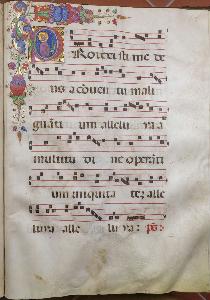 Protexisti me de
us a conventu mali
gnanti um allelu ya a
multitu di ne operanti
um iniquita tez alle
luya alle luya: ps: